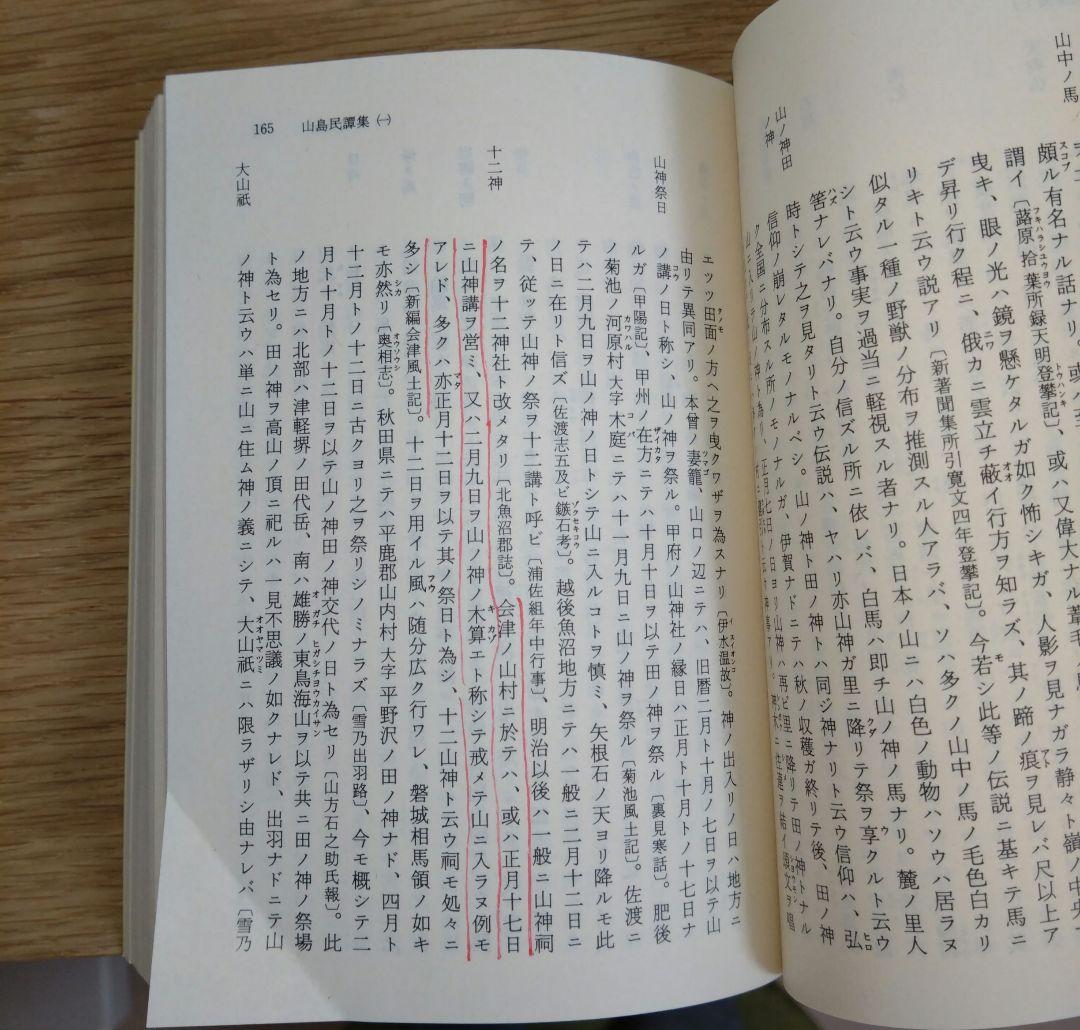 山中ノ馬
頗ル有名ナル話ナリ。或ハ
謂イ〔蕗原拾葉所録天明登攀記〕、或ハ又偉大ナル葦毛
曳キ、眼ノ光ハ鏡ヲ懸ケタルガ如ク怖シキガ、人影ヲ見ナガラ静々ト嶺ノ中
デ昇リ行ク程ニ、俄カニ雲立チ蔽イ行方ヲ知ラズ、其ノ蹄ノ痕ヲ見レバ尺以上ア
リキト云ウ説アリ〔新著聞集所引寛文四年登攀記〕。今若シ此等ノ伝説ニ基キテ馬ニ
似タル一種ノ野獣ノ分布ヲ推測スル人アラバ、ソハ多クノ山中ノ馬ノ毛色白カリ
シト云ウ事実ヲ過当ニ軽視スル者ナリ。日本ノ山ニハ白色ノ動物ハソウハ居ラヌ
筈ナレバナリ。自分ノ信ズル所ニ依レバ、白馬ハ即チ山ノ神ノ馬ナリ。麓ノ里人
山ノ神田
ノ神
時トシテ之ヲ見タリト云ウ伝説ハ、ヤハリ亦山神ガ里ニ降リテ祭ヲ享クルト云ウ
信仰ノ崩レタルモノナルベシ。山ノ神ト田ノ神トハ同ジ神ナリト云ウ信仰ハ、弘
ク全国ニ分布スル所ノモノナルガ、伊賀ナドニテハ秋ノ収穫ガ終リテ後、田ノ神
山ニ入リテ山ノ神ト為リ、正月七日ノ日ヨリ山神ハ再ビ里ニ降リテ田ノ神トナル
注連ヲ結イ頌文ヲ唱
165 山島民譚集㈠
エッツ田面ノ方ヘ之ヲ曳クワザヲ為スナリ〔伊水温故〕。神ノ出入リノ日ハ地方ニ
由リテ異同アリ。木曾ノ妻籠、山口ノ辺ニテハ、旧暦二月ト十月ノ七日ヲ以テ山
山神祭日
ノ講ノ日ト称シ、山ノ神ヲ祭ル。甲府ノ山神社ノ縁日ハ正月ト十月トノ十七日ナ
ルガ〔甲陽記〕、甲州ノ在方ニテハ十月十日ヲ以テ田ノ神ヲ祭ル〔裏見寒話〕。肥後
ノ菊池ノ河原村大字木庭ニテハ十一月九日ニ山ノ神ヲ祭ル〔菊池風土記〕。佐渡ニ
テハ二月九日ヲ山ノ神ノ日トシテ山ニ入ルコトヲ慎ミ、矢根石ノ天ヨリ降ルモ此
ノ日ニ在リト信ズ〔佐渡志五及ビ鏃石考〕。越後魚沼地方ニテハ一般ニ二月十二日ニ
テ、従ッテ山神ノ祭ヲ十二講ト呼ビ〔浦佐組年中行事〕、明治以後ハ一般ニ山神祠
十二神
ノ名ヲ十二神社ト改メタリ〔北魚沼郡誌〕。会津ノ山村ニ於テハ、或ハ正月十七日
ニ山神講ヲ営ミ、又ハ二月九日ヲ山ノ神ノ木算エト称シテ戒メテ山ニ入ラヌ例モ
アレド、多クハ亦正月十二日ヲ以テ其ノ祭日ト為シ、十二山神ト云ウ祠モ処々ニ
多シ〔新編会津風土記〕。十二日ヲ用イル風ハ随分広ク行ワレ、磐城相馬領ノ如キ
モ亦然リ〔奥相志〕。秋田県ニテハ平鹿郡山内村大字平野沢ノ田ノ神ナド、四月ト
十二月トノ十二日ニ古クヨリ之ヲ祭リシノミナラズ〔雪乃出羽路〕、今モ概シテ二
月ト十月トノ十二日ヲ以テ山ノ神田ノ神交代ノ日ト為セリ〔山方石之助氏報〕。此
ノ地方ニハ北部ハ津軽堺ノ田代岳、南ハ雄勝ノ東鳥海山ヲ以テ共ニ田ノ神ノ祭場
ト為セリ。田ノ神ヲ高山ノ頂ニ祀ルハ一見不思議ノ如クナレド、出羽ナドニテ山
大山祇
ノ神ト云ウハ単ニ山ニ住ム神ノ義ニシテ、大山祇ニハ限ラザリシ由ナレバ〔雪乃